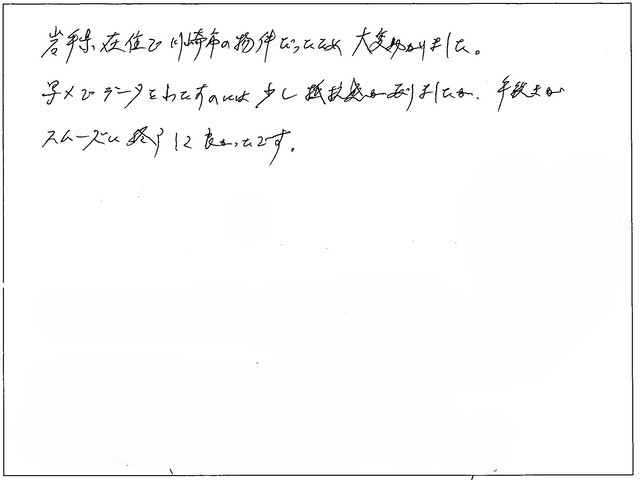 岩手県在住で川崎市の物件だったため大変助かりました。
写メでデータをわたすのには少し抵抗感がありましたが、手続きが
スムーズに終了して良かったです。